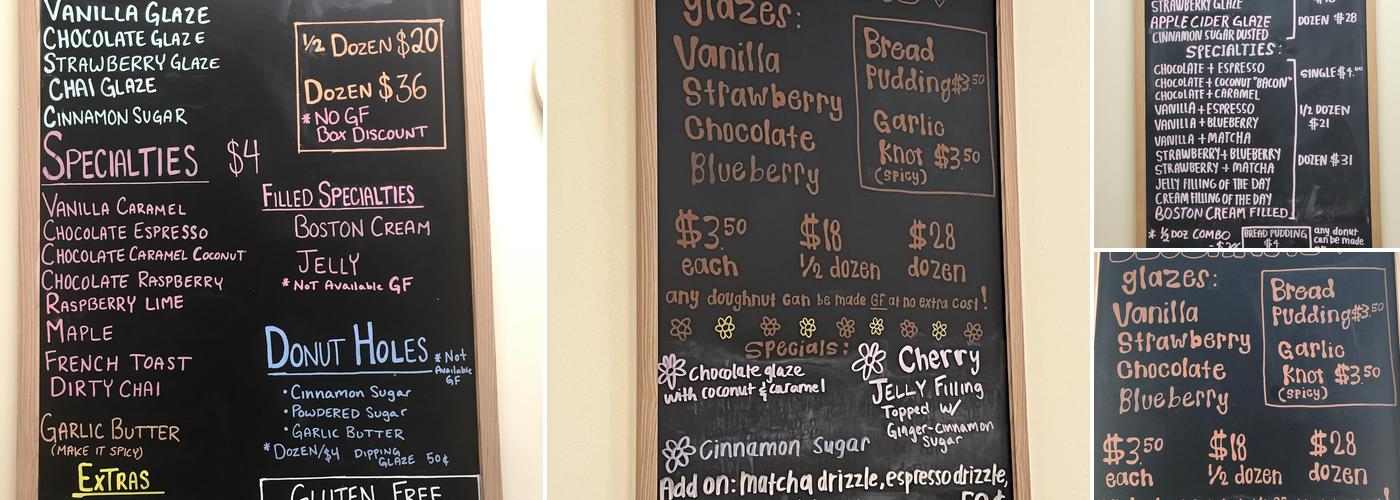 VANILLA GLAZE
CHOCOLATE GLAZE
STRAWBERRY GLAZE
CHAI GLAZE
CINNAMON SUGAR
1/2 DOZEN $20
DOZEN $36
*NO GF
BOX DISCOUNT
SPECIALTIES $4
VANILLA CARAMEL
CHOCOLATE ESPRESSO
CHOCOLATE CARAMEL COCONUT
CHOCOLATE RASPBERRY
RASPBERRY LIME
MAPLE
FRENCH TOAST
DIRTY CHAI
GARLIC BUTTER
(MAKE IT SPICY)
EXTRAS
FILLED SPECIALTIES
BOSTON CREAM
JELLY
*NOT AVAILABLE GF
DONUT HOLES *Not
Available
GF
•Cinnamon Sugar
•POWDERED Sugar
•GARLIC BUTTER
*DOZEN/$4 DIPPING
GLAZE 50¢
GLUTEN FREE
glazes:
Vanilla
Strawberry
Chocolate
Blueberry
Bread
Pudding $3.50
Garlic
Knot $3.50
(spicy)
$3.50 $18 $28
each 1/2 dozen dozen
any doughnut can be made GF at no extra cost!
Specials:
Chocolate glaze
with coconut & caramel
Cherry
JELLY Filling
Topped w/
Ginger-cinnamon
Sugar
Cinnamon Sugar
Add on: matcha drizzle, espresso drizzle,
50¢
STRAWBERRY GLAZE
APPLE CIDER GLAZE
CINNAMON SUGAR DUSTED
DOZEN $28
SPECIALTIES:
CHOCOLATE + ESPRESSO
CHOCOLATE + COCONUT "BACON"
CHOCOLATE + CARAMEL
VANILLA + ESPRESSO
VANILLA + BLUEBERRY
VANILLA + MATCHA
STRAWBERRY + BLUEBERRY
STRAWBERRY + MATCHA
JELLY FILLING OF THE DAY
CREAM FILLING OF THE DAY
BOSTON CREAM FILLED
SINGLE $4.00
1/2 DOZEN
$21
DOZEN $31
* 1/2 DOZ COMBO
BREAD PUDDING
$4
any donut
can be made
glazes:
Vanilla
Strawberry
Chocolate
Blueberry
Bread
Pudding $3.50
Garlic
Knot $3.50
(spicy)
$3.50 $18 $28
each 1/2 dozen dozen